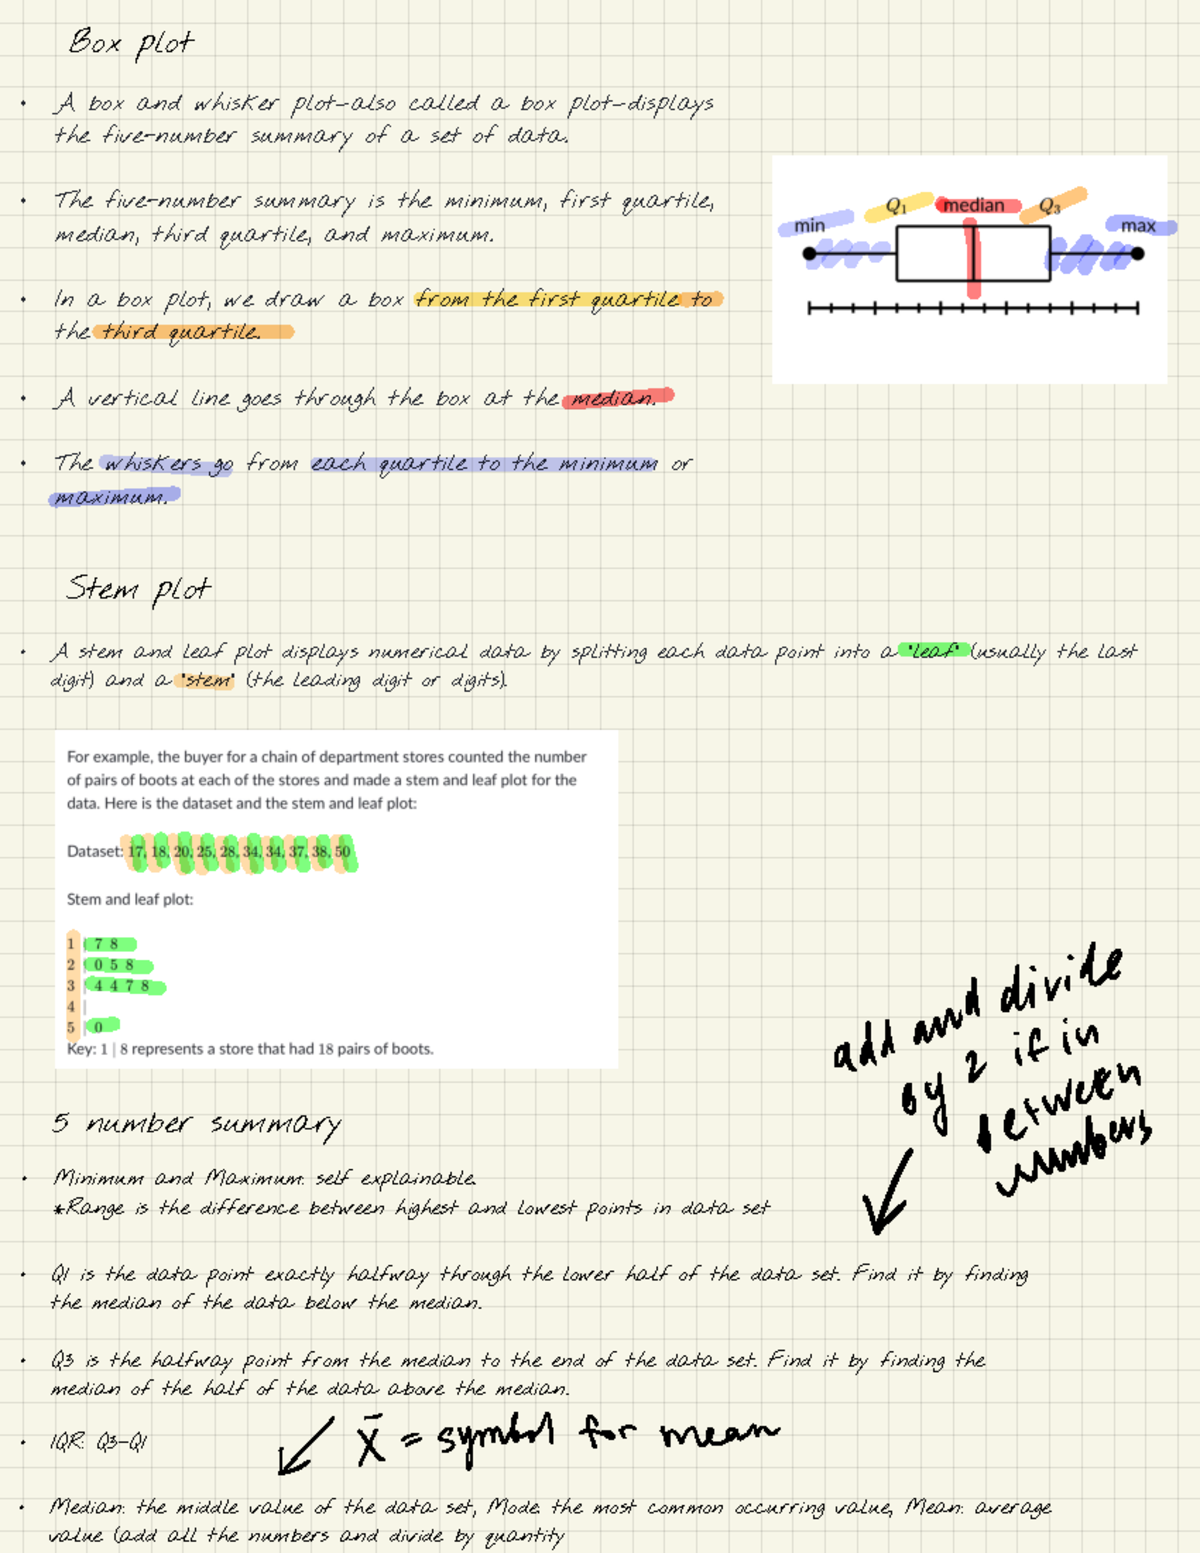 Box plot
• A box and whisker plot-also called a box plot-displays
the five-number summary of a set of data.
• The five-number summary is the minimum, first quartile,
median, third quartile, and maximum.
• In a box plot, we draw a box from the first quartile to
the third quartile.
• A vertical line goes through the box at the median.
• The whiskers go from each quartile to the minimum or
maximum.
Q1 median Q3
min max
Stem plot
• A stem and leaf plot displays numerical data by splitting each data point into a "leaf" (usually the last
digit) and a "stem" (the leading digit or digits).
For example, the buyer for a chain of department stores counted the number
of pairs of boots at each of the stores and made a stem and leaf plot for the
data. Here is the dataset and the stem and leaf plot:
Dataset: 17, 18, 20, 25, 28, 34, 34, 37, 38, 50
Stem and leaf plot:
1 | 7 8
2 | 0 5 8
3 | 4 4 7 8
4 |
5 | 0
Key: 1 | 8 represents a store that had 18 pairs of boots.
add and divide
by 2 if in
between
numbers
5 number summary
• Minimum and Maximum: self explainable
*Range is the difference between highest and lowest points in data set
• Q1 is the data point exactly halfway through the lower half of the data set. Find it by finding
the median of the data below the median.
• Q3 is the halfway point from the median to the end of the data set. Find it by finding the
median of the half of the data above the median.
• IQR: Q3-Q1
x̄ = symbol for mean
• Median: the middle value of the data set, Mode: the most common occurring value, Mean: average
value (add all the numbers and divide by quantity